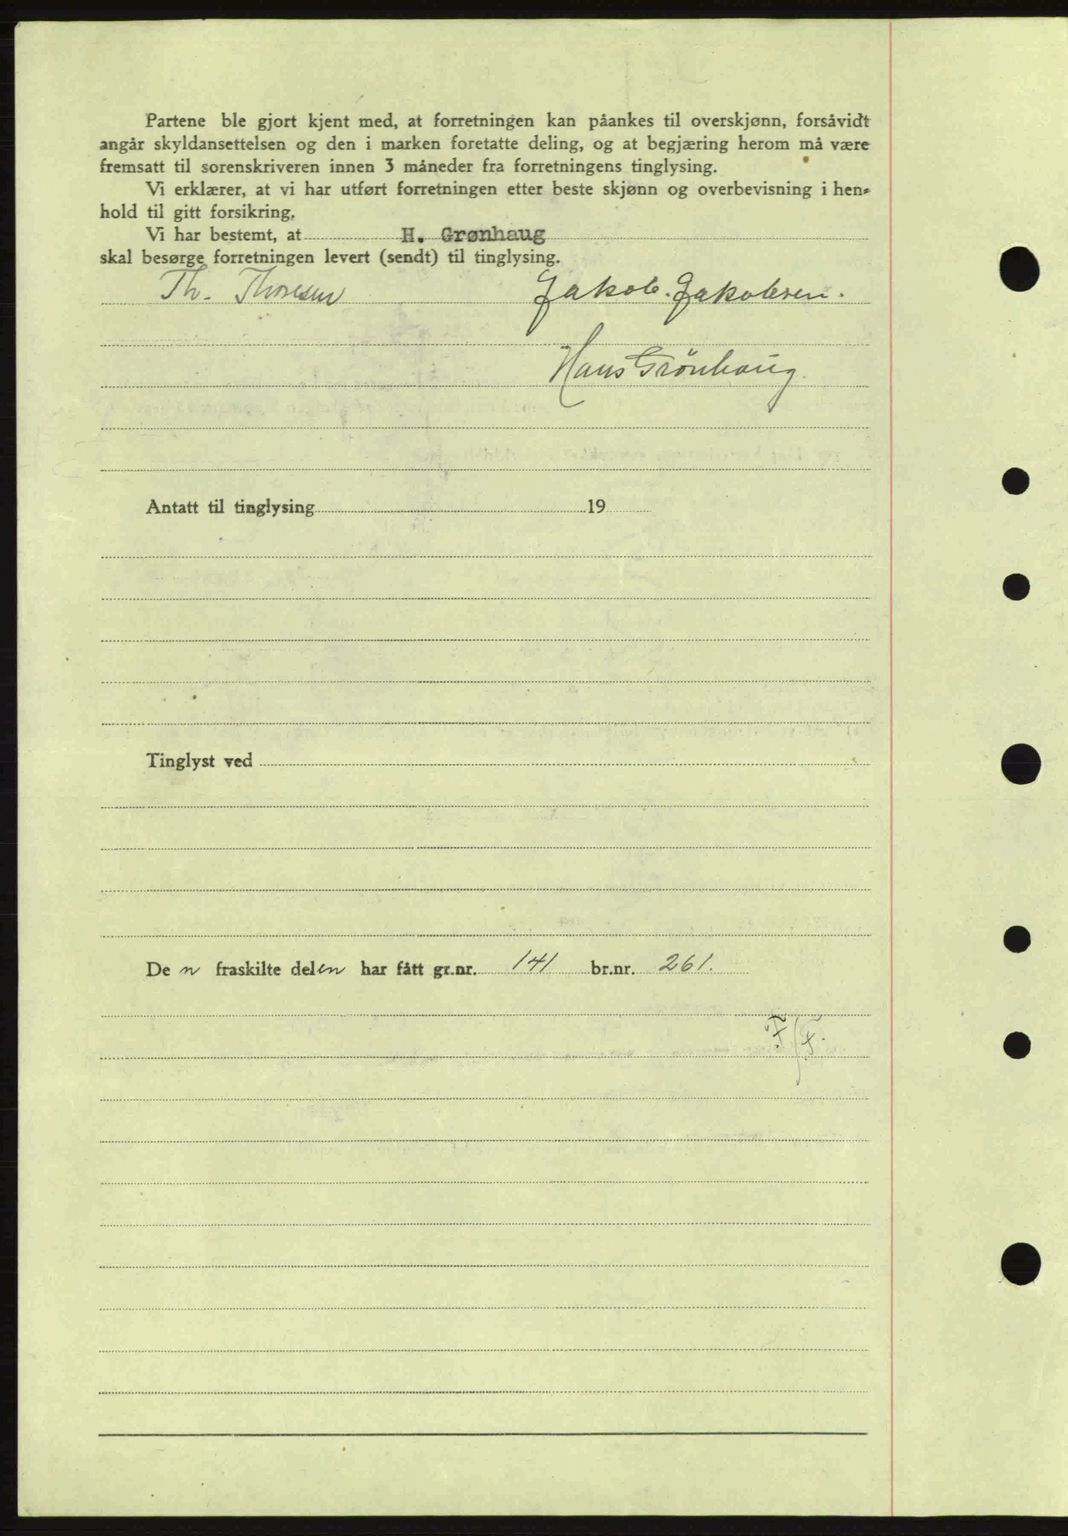 Partene ble gjort kjent med, at forretningen kan påankes til overskjønn, forsåvidt
angår skyldansettelsen og den i marken foretatte deling, og at begjæring herom må være
fremsatt til sorenskriveren innen 3 måneder fra forretningens tinglysing.
Vi erklærer, at vi har utført forretningen etter beste skjønn og overbevisning i hen-
hold til gitt forsikring.
Vi har bestemt, at H. Grønhaug
skal besørge forretningen levert (sendt) til tinglysing.
Th. Thoresen Jakob. Jakobsen.
Hans Grönhaug.
Antatt til tinglysing 19
Tinglyst ved
De n fraskilte delen har fått gr.nr. 141 br.nr. 261.
F/F.